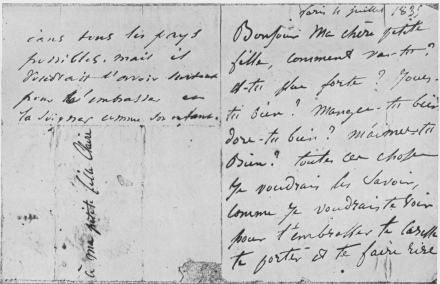 Paris 4 juillet 183
Bonjour Ma chère petite
fille, comment vas-tu?
es-tu plus forte? Joues-
tu bien? Manges-tu bien
dors-tu bien? m'aimes-tu
Bien? toutes ces choses
Je voudrais les savoir,
comme je voudrais te voir
pour t'embrasser te caresser
te porter et te faire rire
dans tous les pays
possibles. mais il
voudrait t'avoir surtout
pour t'embrasser et
te soigner comme son enfant.
à ma petite fille Claire